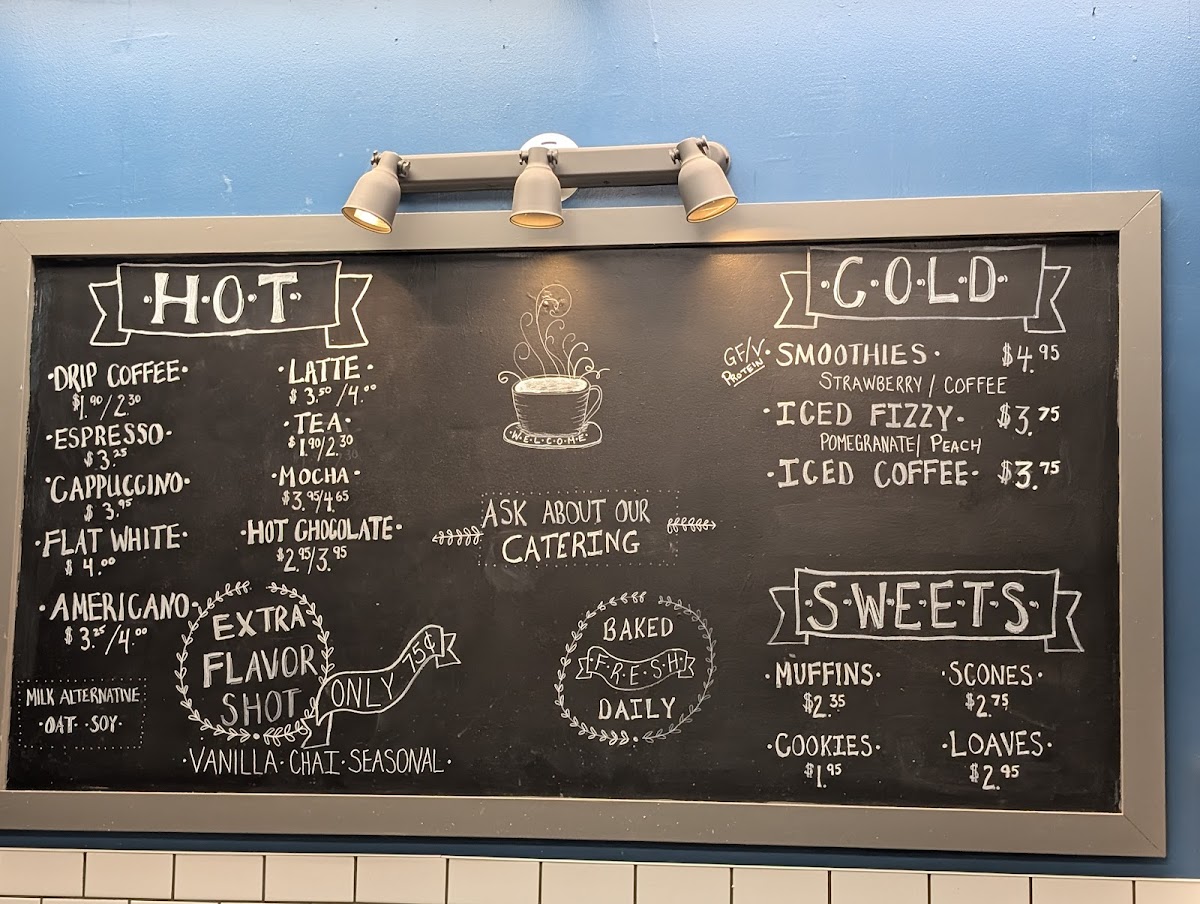 HOT
·DRIP COFFEE·
$1.90/2.30
·ESPRESSO·
$3.25
·CAPPUCCINO·
$3.95
·FLAT WHITE·
$4.00
·AMERICANO·
$3.25/4.00
·LATTE·
$3.50/4.00
·TEA·
$1.90/2.30
·MOCHA·
$3.95/4.65
·HOT CHOCOLATE·
$2.95/3.95
MILK ALTERNATIVE
·OAT· ·SOY·
EXTRA
FLAVOR
SHOT
ONLY 75¢
·VANILLA·CHAI·SEASONAL·
·W·E·L·C·O·M·E·
ASK ABOUT OUR
CATERING
BAKED
F·R·E·S·H
DAILY
·C·O·L·D·
GF/V
PROTEIN
·SMOOTHIES· $4.95
STRAWBERRY/COFFEE
·ICED FIZZY· $3.75
POMEGRANATE/PEACH
·ICED COFFEE· $3.75
·S·W·E·E·T·S·
·MUFFINS·
$2.35
·SCONES·
$2.75
·COOKIES·
$1.95
·LOAVES·
$2.95